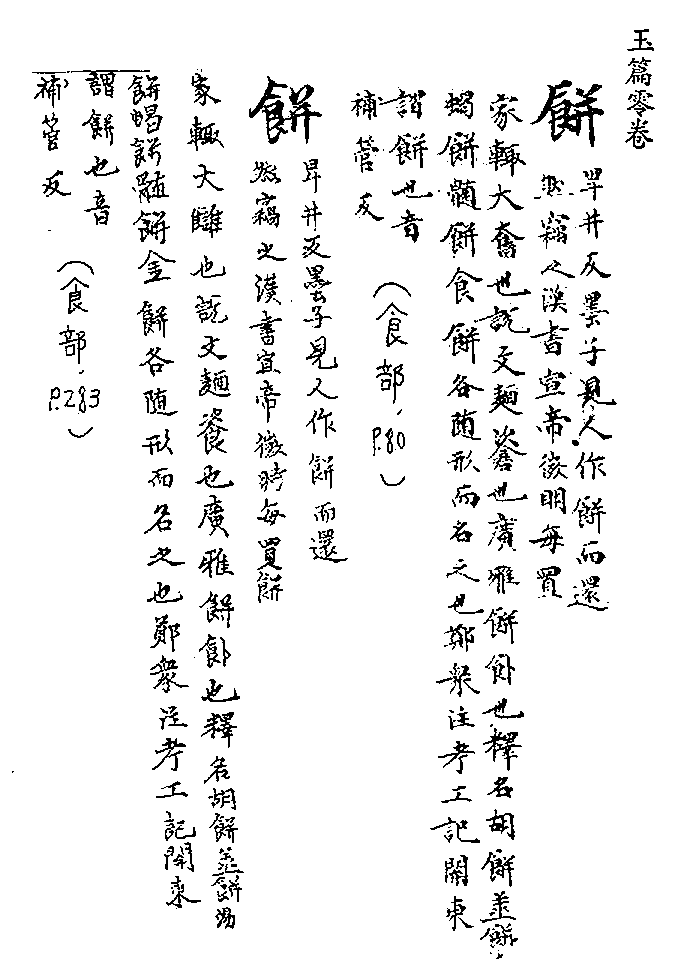 玉篇零卷
餅 㽷井反墨子見人作餅而還
然竊之漢書宣帝微明每買
家輒大奮也說文麵餈也廣雅餅䬳也釋名胡餅並餅
蝎餅髓餅食餅各随形而名之也鄭衆注考工記關東
謂餅也音
補管反
(食部,P.80)
餅 㽷井反墨子見人作餅而還
然竊之漢書宣帝微時每買餅
家輒大讎也說文麵餈也廣雅餅䬳也釋名胡餅蒸餅湯
餅蝎餅髓餅金餅各随形而名之也鄭衆注考工記開東
謂餅也音
補管反
(食部,P.283)